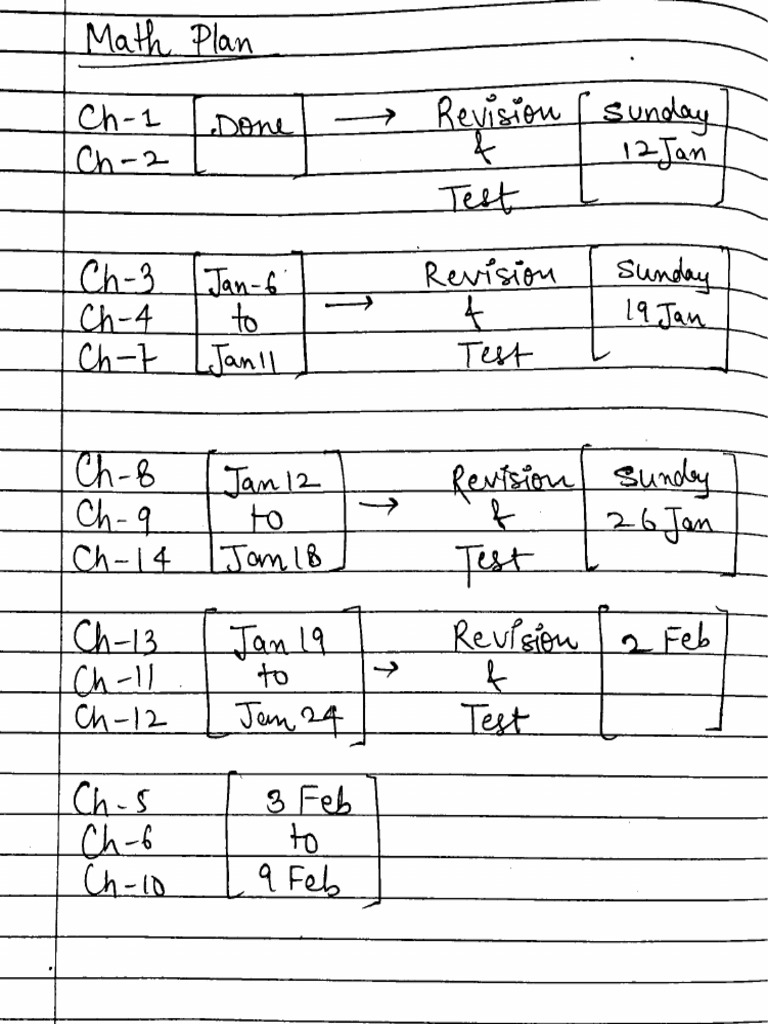 Math Plan
Ch-1 Done → Revision Sunday
Ch-2 & 12 Jan
Test
Ch-3 Jan-6 Revision Sunday
Ch-4 to → & 19 Jan
Ch-7 Jan 11 Test
Ch-8 Jan 12 Revision Sunday
Ch-9 to → & 26 Jan
Ch-14 Jan 18 Test
Ch-13 Jan 19 Revision 2 Feb
Ch-11 to → &
Ch-12 Jan 24 Test
Ch-5 3 Feb
Ch-6 to
Ch-10 9 Feb